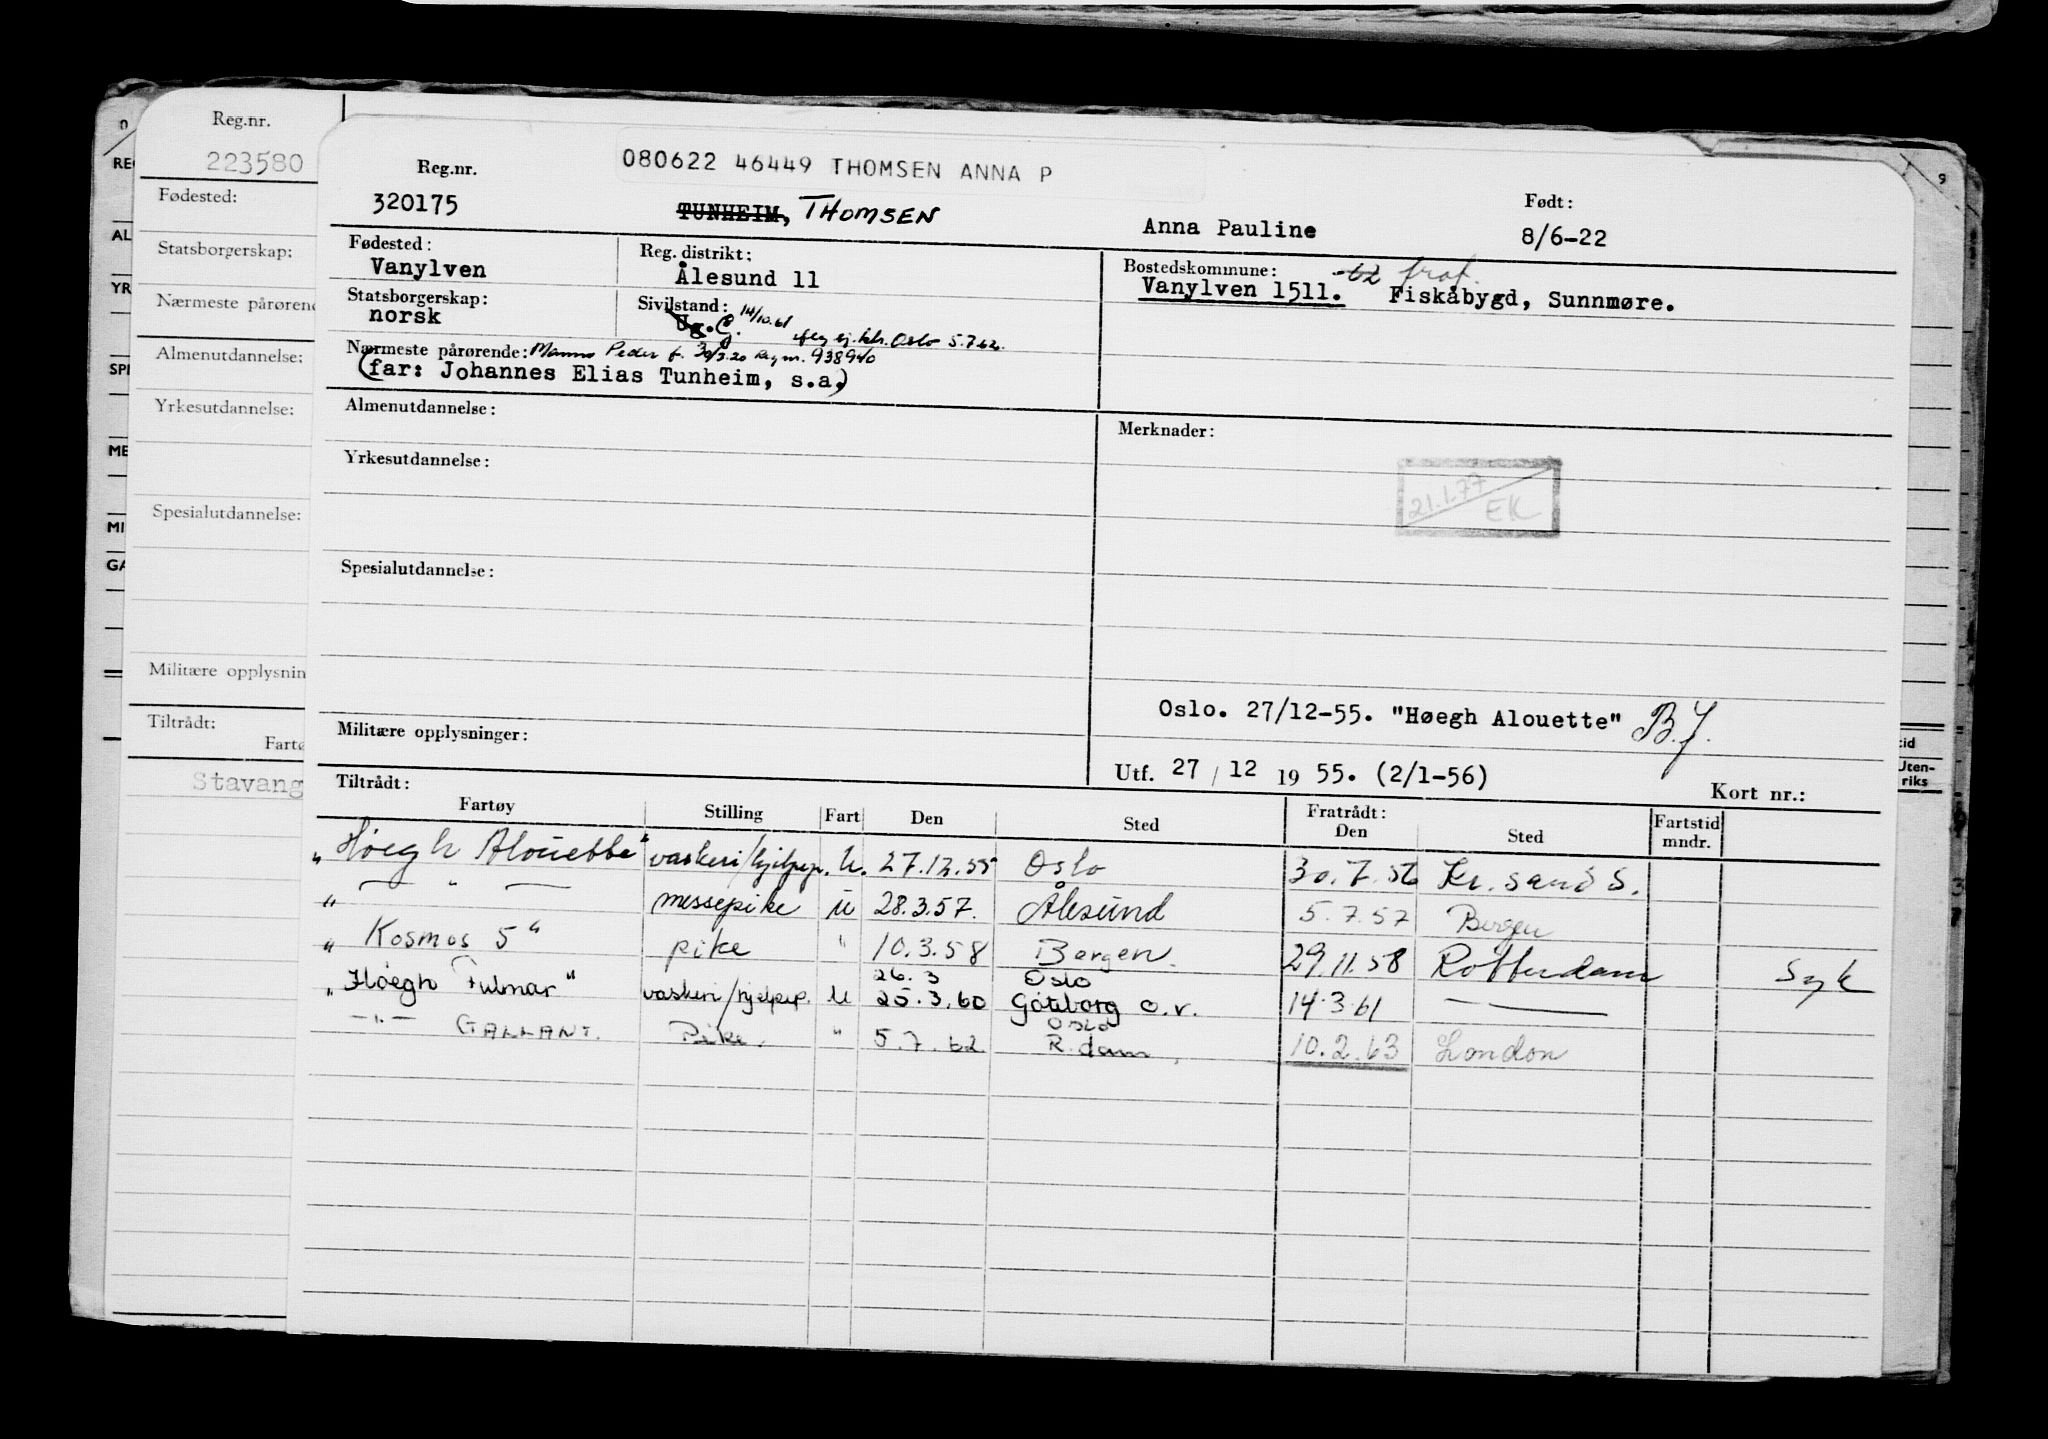 Reg.nr.
223580
Fødested:
Statsborgerskap:
Nærmeste pårørend
Almenutdannelse:
Yrkesutdannelse:
Spesialutdannelse:
Militære opplysnin
Tiltrådt:
Stavang
080622 46449 THOMSEN ANNA P
Reg.nr.
320175
TUNHEIM, THOMSEN
Anna Pauline
Født:
8/6-22
Fødested:
Vanylven
Reg. distrikt:
Ålesund 11
Bostedskommune:
Vanylven 1511. Fiskåbygd, Sunnmøre.
Statsborgerskap:
norsk
Sivilstand:
Ug. G. 14/10.61
Oslo 5.7.62.
Nærmeste pårørende: Mann Peder f. 30/3.20 Reg nr. 938940
(far: Johannes Elias Tunheim, s.a.)
Almenutdannelse:
Merknader:
Yrkesutdannelse:
21.1.77
EK
Spesialutdannelse:
Oslo. 27/12-55. "Høegh Alouette" B.J.
Militære opplysninger:
Utf. 27 / 12 19 55. (2/1-56)
Kort nr.:
Tiltrådt:
Fartøy Stilling Fart Den Sted Fratrådt: Den Sted Fartstid mndr.
"Høegh Alouette" vaskeri/hjelpep. U. 27.12.55 Oslo 30.7.56 Kr. sand S.
" — " — messepike U 28.3.57. Ålesund 5.7.57 Bergen
" Kosmos 5" pike " 10.3.58 Bergen. 29.11.58 Rotterdam Syk
26.3 Oslo
"Høegh Fulmar" vaskeri/hjelpep. U 25.3.60 Gøteborg o.v. 14.3.61 —
Oslo
— " — GALLANT. Pike. " 5.7.62 R.dam. 10.2.63 London